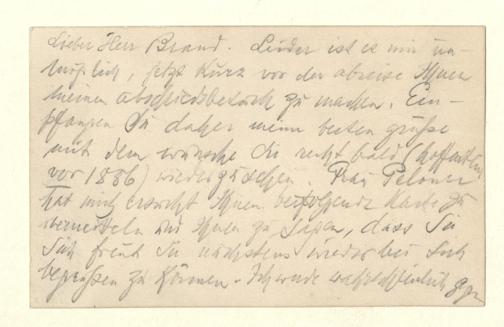 Lieber Herr Brand. Leider ist es mir un-
möglich, jetzt kurz vor der abreise Ihnen
meinen abschiedsbesuch zu machen. Em-
pfangen Sie daher meine besten grüsse
mit dem wunsche Sie recht bald (hoffentlich
vor 1886) wiederzusehen. Frau
hat mich ersucht Ihnen beifolgende karte zu
uebermitteln und Ihnen zu sagen, dass Sie
Sich freut Sie nächstens wieder bei Sich
begrüßen zu können. Ich werde wahrscheinlich